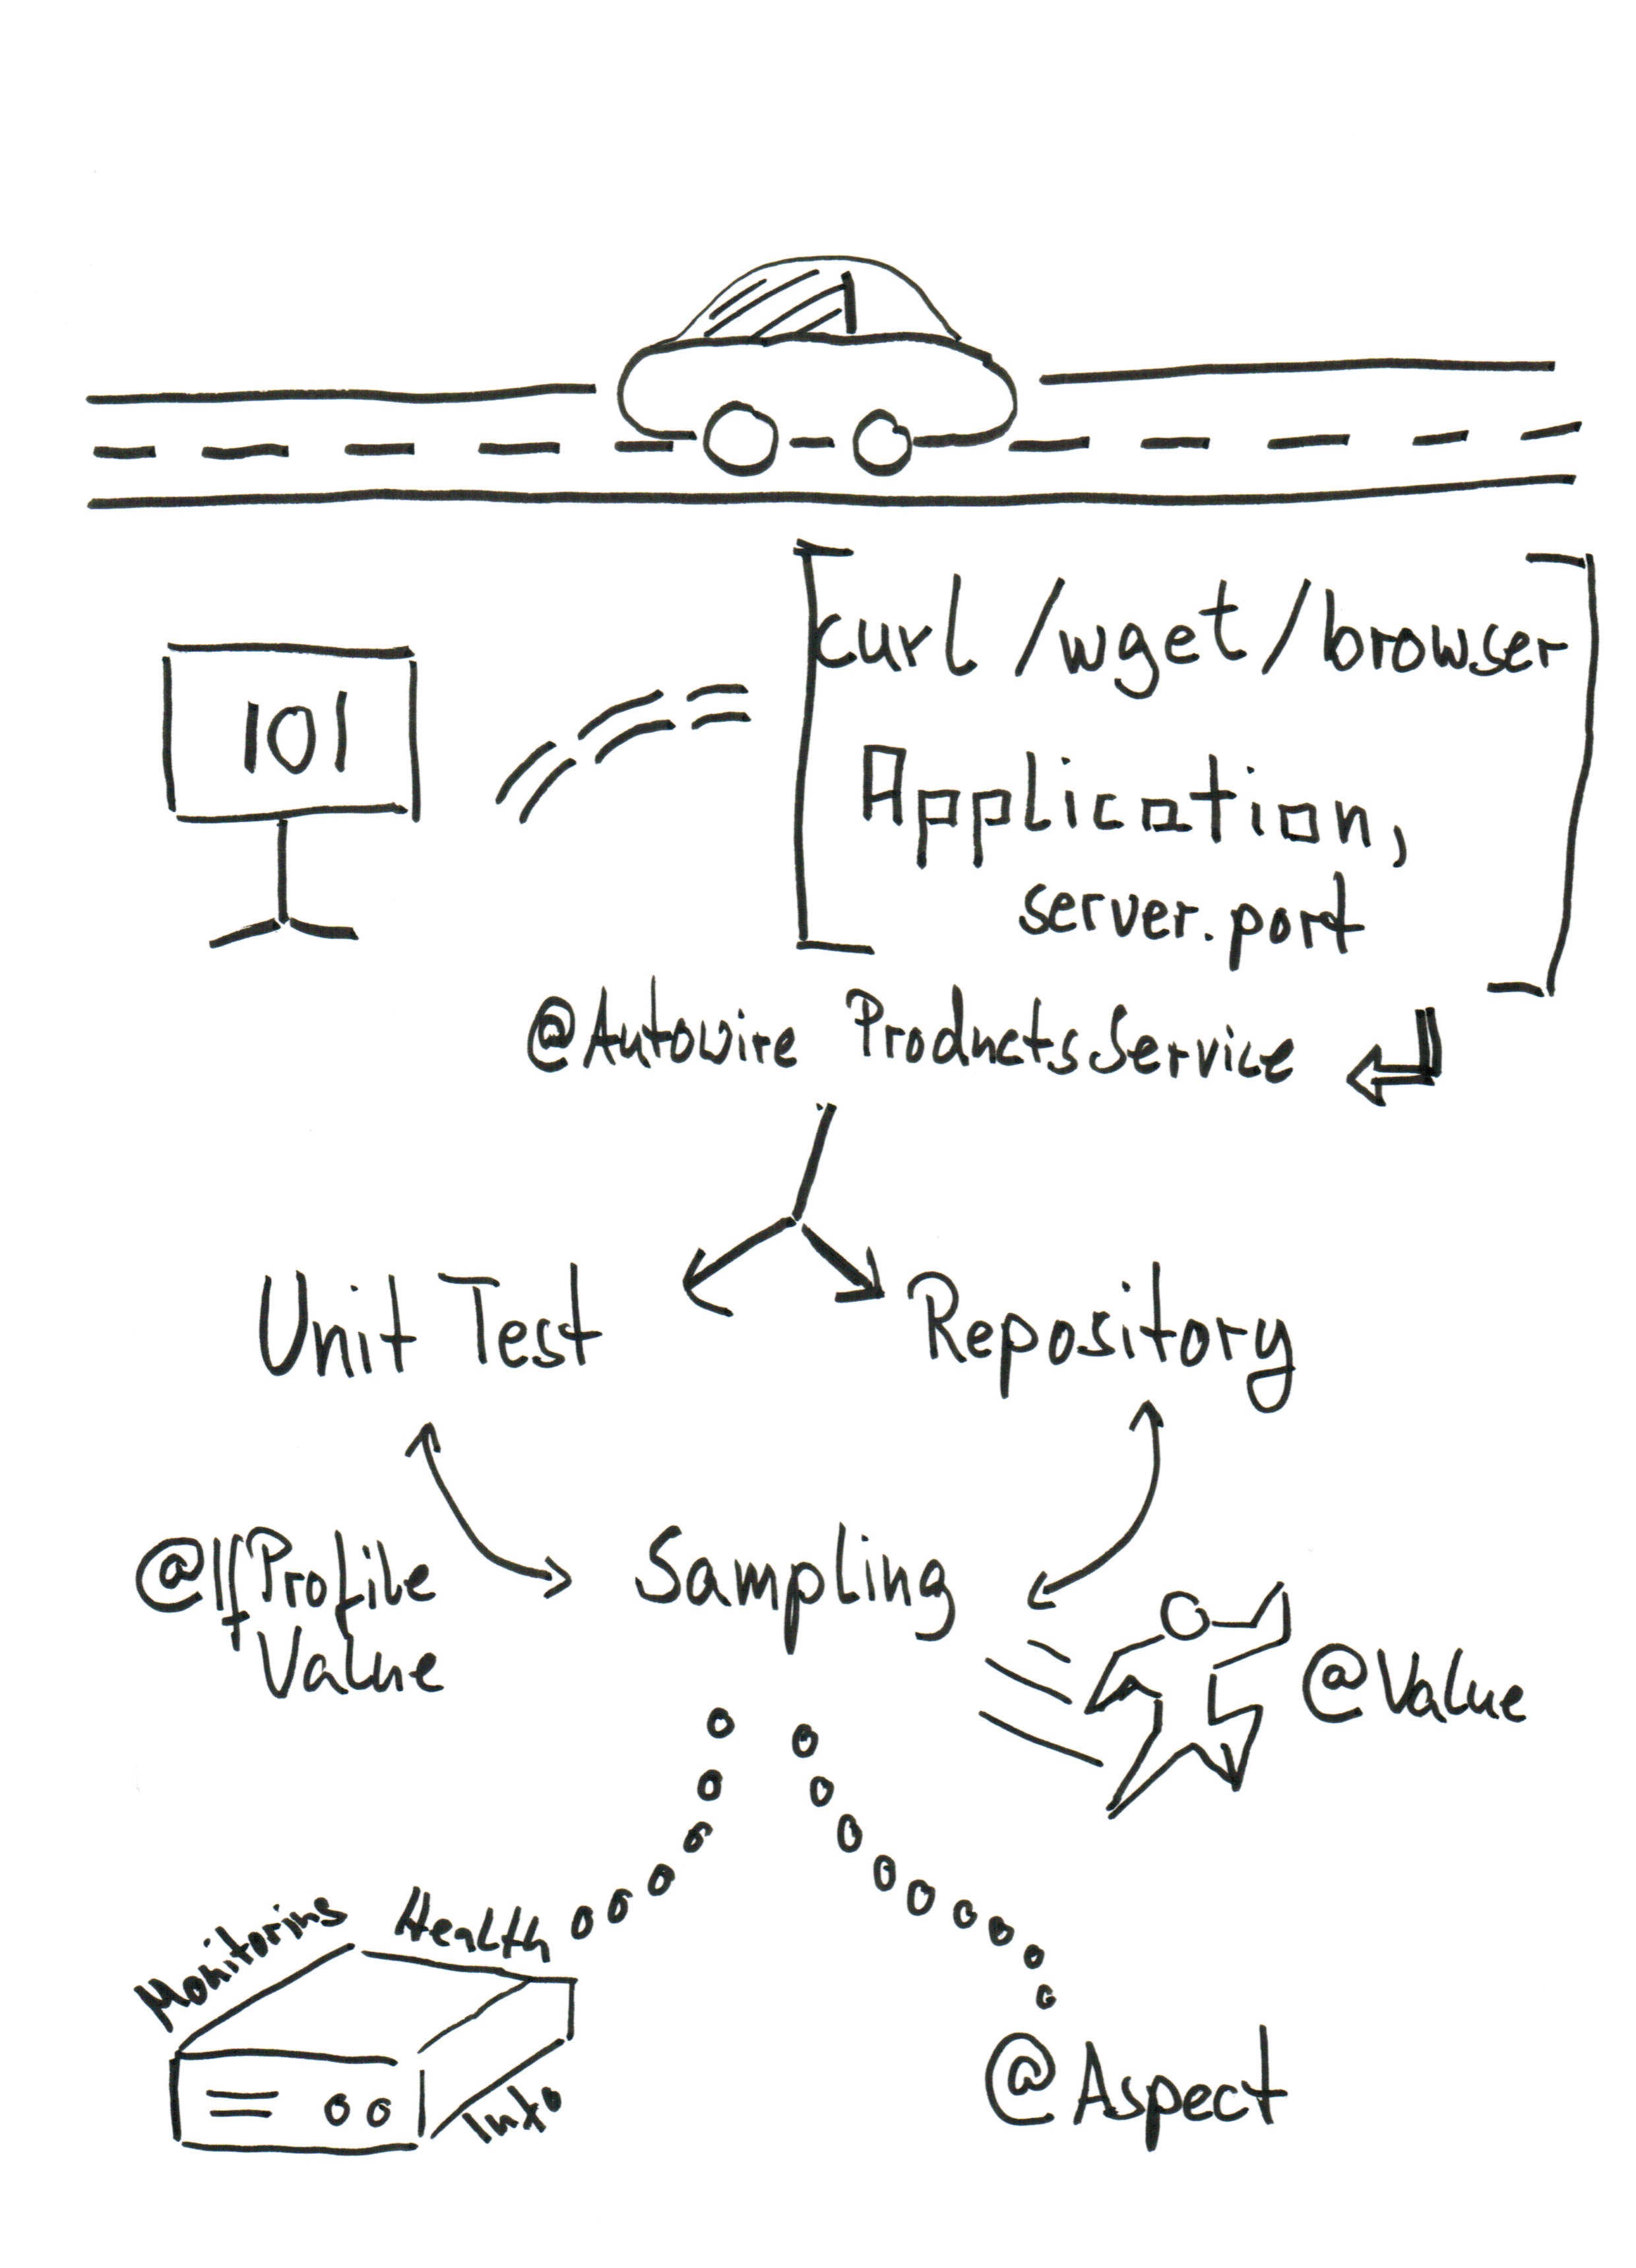 101
curl /wget/browser
Application,
server.port
@Autowire ProductsService
Unit Test
Repository
@IfProfile
Value
Sampling
@Value
Monitoring
Health
Info
@Aspect